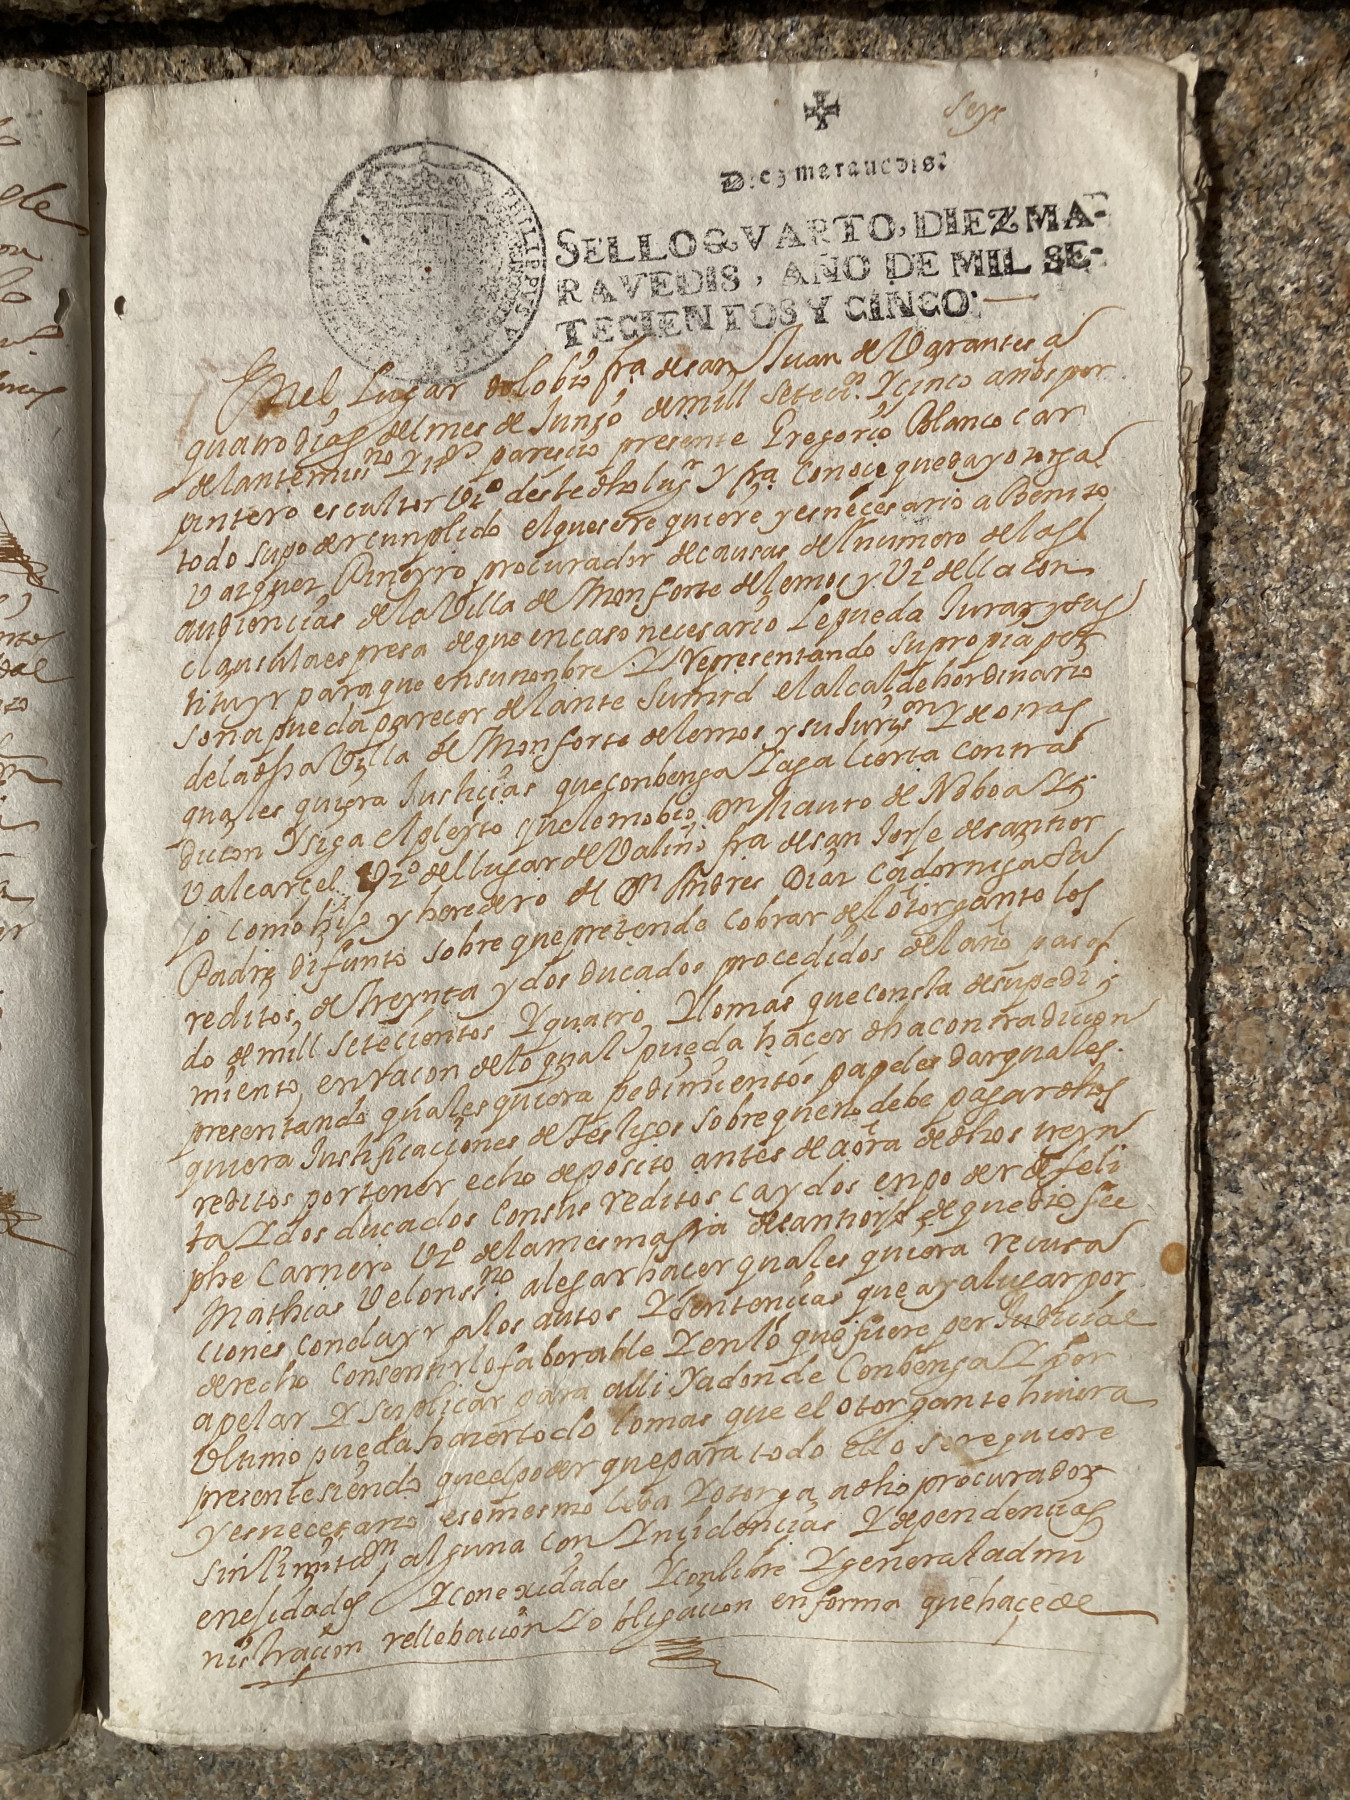 seys
Diez maravedis.
SELLO QVARTO, DIEZ MA-
RAVEDIS, AÑO DE MIL SE-
TECIENTOS Y CINCO.
PHILIPPUS V
En el Lugar do lobio fra de san Juan de Vgrantes a
quatro dias del mes de Junjo de mill setecis. Y cinco años por
delante mi ssno y tsº parecio presente Gregorio Blanco car
pintero escultor Vzº deste dho lugr y fra conoce que da y otorga
todo su poder cunplido el que se re quiere y es neçesario a Benito
Vazquez Pineyro procurador de causas del numero de las
audiencias de la Villa de Monforte de lemos y Vzº della con
clausula espresa de que en caso necesario le pueda Jurar y sus
tituyr para que en su nonbre Y representando su propia per
sona pueda parecer delante su mrd el alcalde hordinario
de la dha Villa de Monforte de lemos y su Jurison y de otras
quales quiera Justicias que conbenga Y aga cierta contra
dicion Y siga el pleyto que le mobio Dn Mauro de Noboa Y
Valcarçel Vzº del lugar de Valiño fra de san Jorje de santior
jo como hijo y heredero de Dn Andres Diaz Cadorniga su
Padre difunto sobre que pretende cobrar del otorgante los
reditos de treynta y dos ducados procedidos del año pasa
do de mill setecientos Y quatro Y lo mas que consta de su pedi
miento en racon de lo qual pueda hacer dha contradicion
presentando quales quiera pedimientos papeles dar quales
quiera Justificaciones de testigos sobre que no debe pagar dhos
reditos por tener echo deposito antes de aora de dhos treyn
ta Y dos ducados con sus reditos caydos en poder de feli
phe Carnero Vzº de la mesma fra de santiorjo de que dio fee
Mathias Velon ssno. alegar hacer quales quiera recusa
ciones concluyr a los autos Y sentencias que ay a lugar por
derecho consentir lo faborable Y en lo que fuere perJudicial
apelar Y suplicar para alli Y a donde Conbenga Y por
vltimo pueda hacer todo lo mas que el otorgante hiciera
presente siendo que el poder que para todo ello se requiere
y es necesario eso mesmo le da Y otorga a dho procurador
sin limitaon alguna con Yncidencias Y dependencias
enesidades Y conexidades Y con libre Y general admi
nistracion rellebacion Y obligacion en forma que hace de